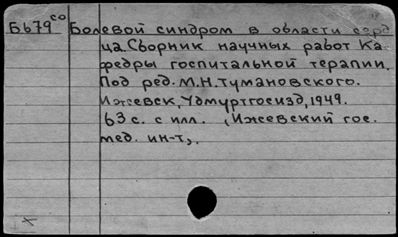 Б679 со Болевой синдром в области серд
ца. Сборник научных работ Ка
федры госпитальной терапии.
Под ред. М.Н. Тумановского.
Ижевск, Удмуртгосизд, 1949.
63 с. с илл. (Ижевский гос.
мед. ин-т).